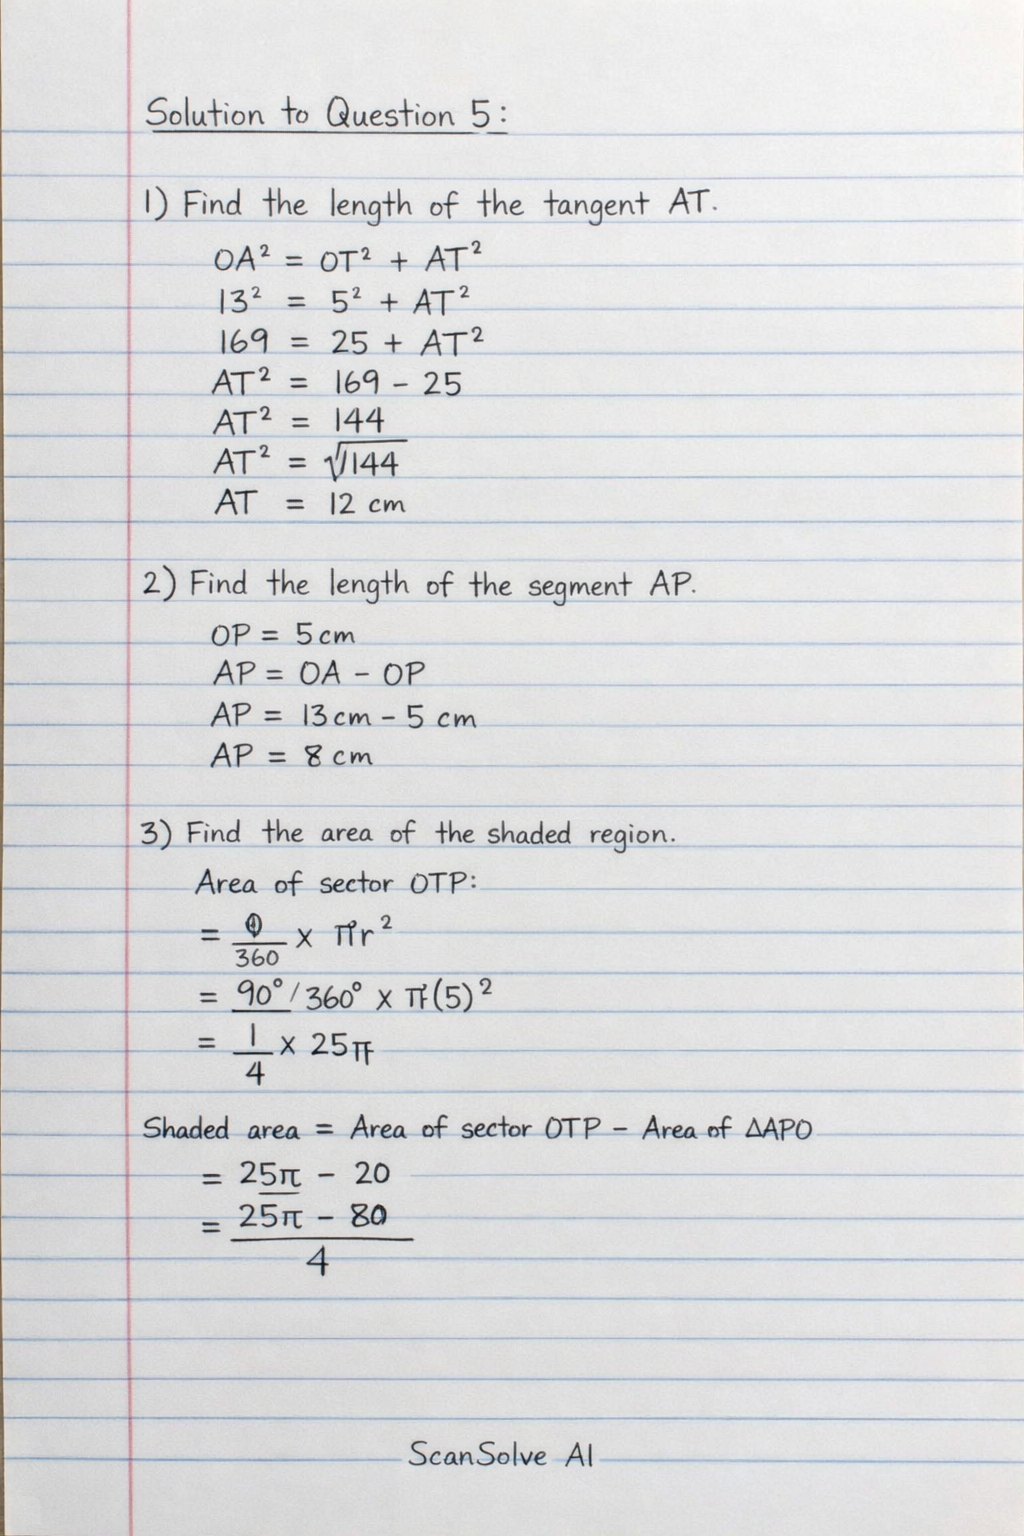 Solution to Question 5:
1) Find the length of the tangent AT.
OA² = OT² + AT²
13² = 5² + AT²
169 = 25 + AT²
AT² = 169 - 25
AT² = 144
AT² = √144
AT = 12 cm
2) Find the length of the segment AP.
OP = 5cm
AP = OA - OP
AP = 13cm - 5 cm
AP = 8 cm
3) Find the area of the shaded region.
Area of sector OTP:
= θ/360 × πr²
= 90°/360° × π(5)²
= 1/4 × 25π
Shaded area = Area of sector OTP - Area of ΔAPO
= 25π - 20
= 25π - 80
4
ScanSolve AI